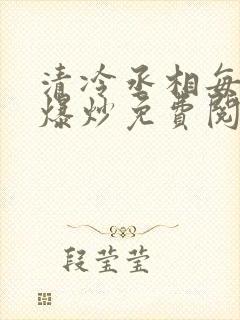 清冷丞相每
爆炒免费阅
段莹莹